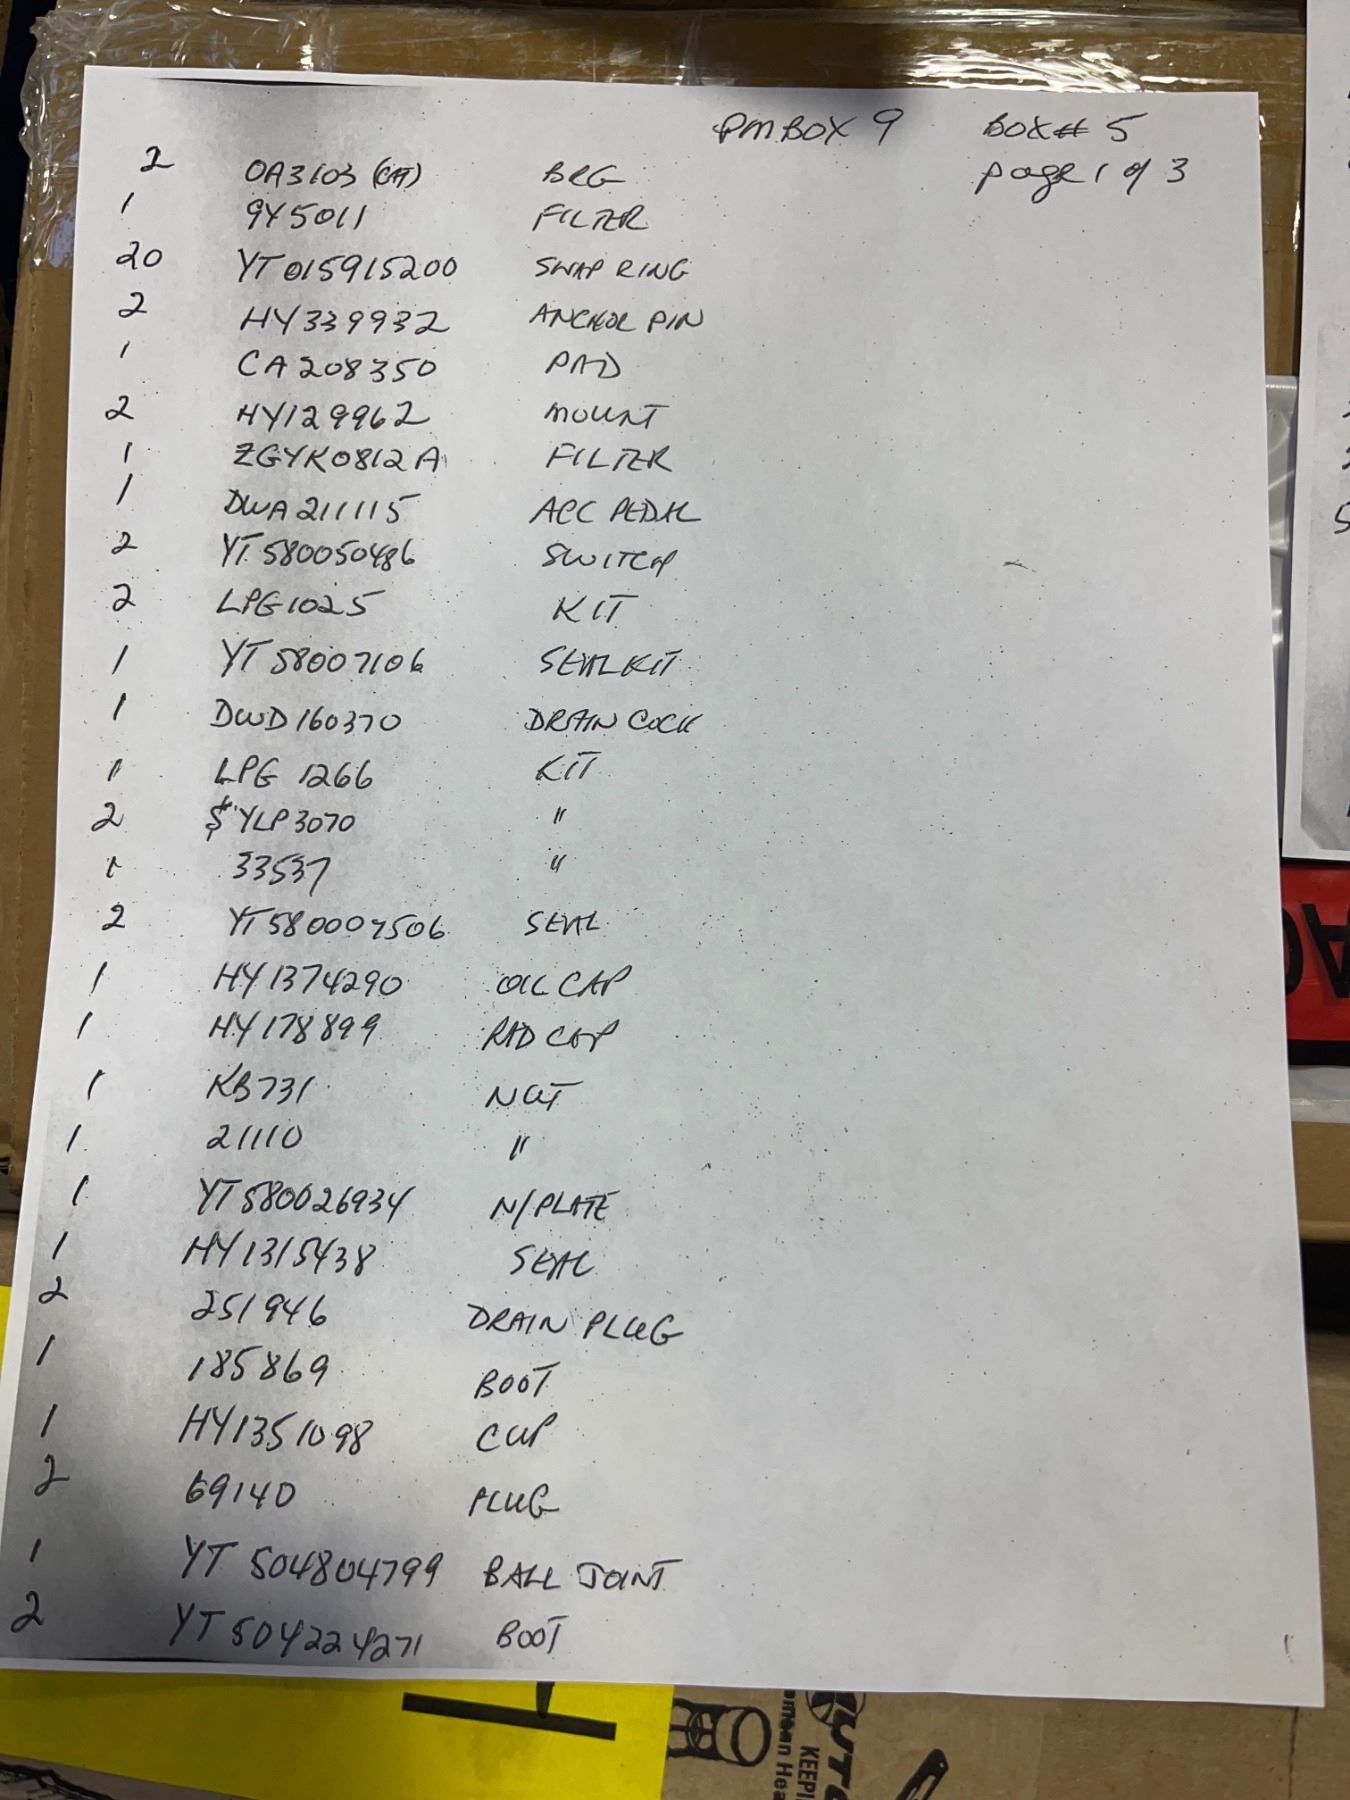 PM BOX 9 BOX# 5
page 1 of 3
2 OA3103 (CAT) BRG
1 9Y5011 FILTER
20 YT015915200 SNAP RING
2 HY339932 ANCHOR PIN
1 CA208350 PAD
2 HY129962 MOUNT
1 ZGYK0812A FILTER
1 DWA211115 ACC PEDAL
2 YT580050486 SWITCH
2 LPG1025 KIT
1 YT58007106 SEAL KIT
1 DWD160370 DRAIN COCK
1 LPG 1266 KIT
2 YLP3070 "
1 33537 "
2 YT580007506 SEAL
1 HY1374290 OIL CAP
1 HY178899 RAD CAP
1 KB731 NUT
1 21110 "
1 YT580026934 N/PLATE
1 HY1315438 SEAL
2 251946 DRAIN PLUG
1 185869 BOOT
1 HY1351098 CUP
2 69140 PLUG
1 YT 504804799 BALL JOINT
2 YT504224271 BOOT
KEEPI